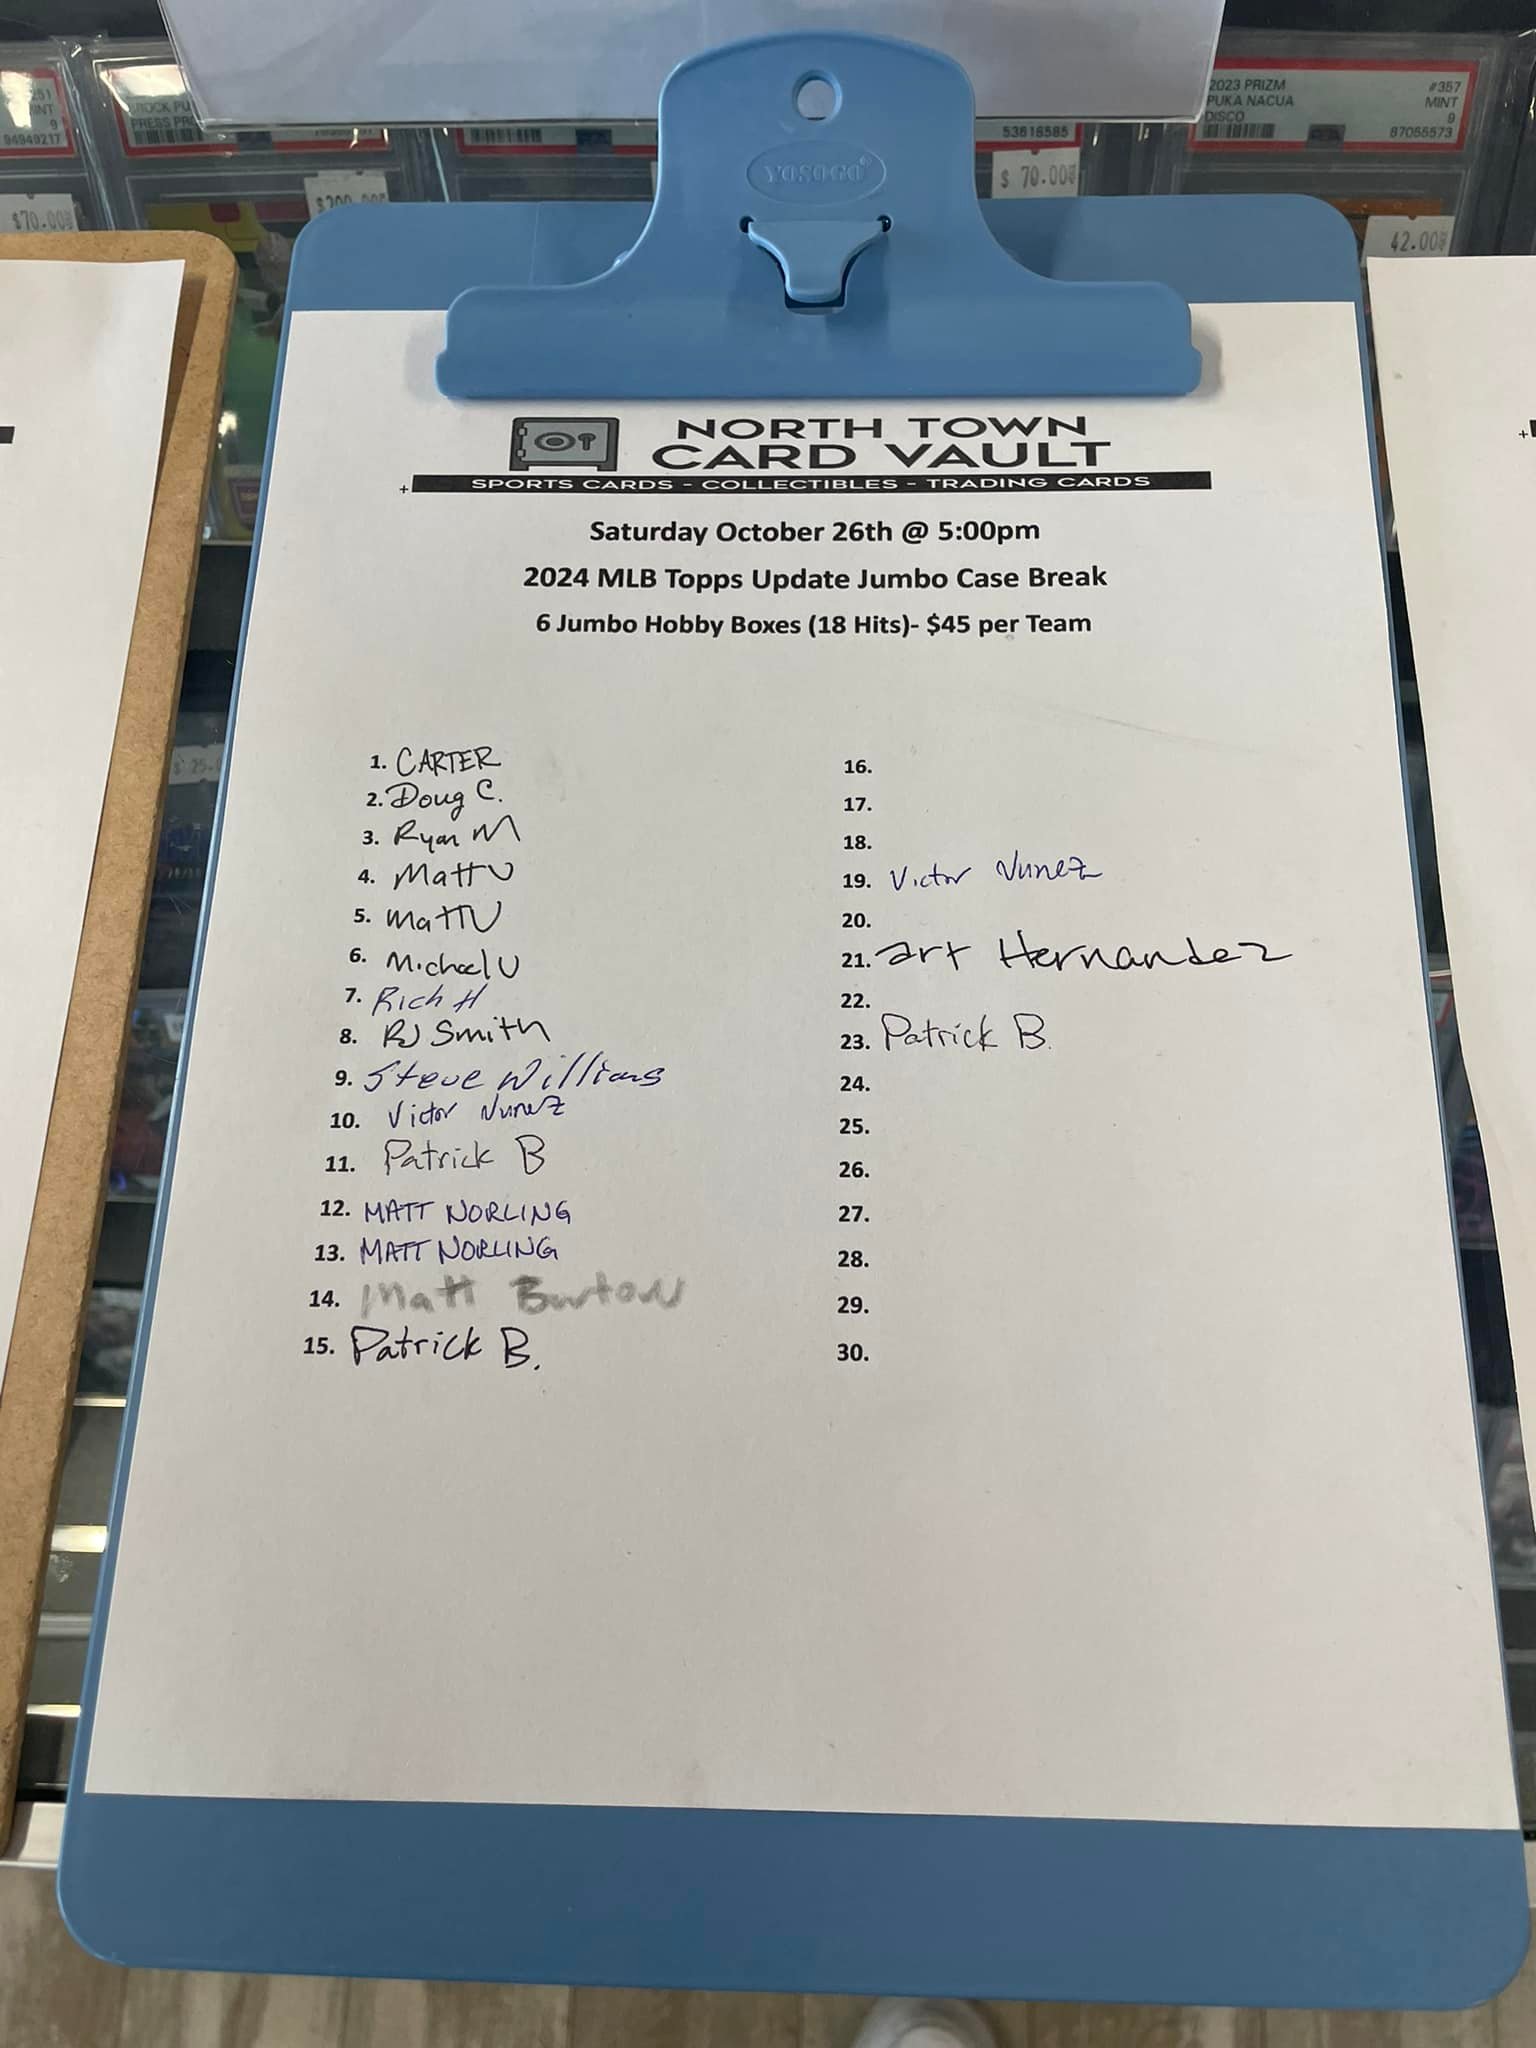 251
MINT
9
94949217
PRESS PR
$70.00
53616585
$ 70.00
2023 PRIZM #357
PUKA NACUA MINT
DISCO 9
87055573
42.00
YOSOGO
NORTH TOWN
CARD VAULT
SPORTS CARDS - COLLECTIBLES - TRADING CARDS
Saturday October 26th @ 5:00pm
2024 MLB Topps Update Jumbo Case Break
6 Jumbo Hobby Boxes (18 Hits)- $45 per Team
1. CARTER
2. Doug C.
3. Ryan M
4. Matt U
5. Matt U
6. Michael U
7. Rich H
8. RJ Smith
9. Steve Williams
10. Victor Nunez
11. Patrick B
12. MATT NORLING
13. MATT NORLING
14. Matt Burton
15. Patrick B.
16.
17.
18.
19. Victor Nunez
20.
21. Art Hernandez
22.
23. Patrick B.
24.
25.
26.
27.
28.
29.
30.